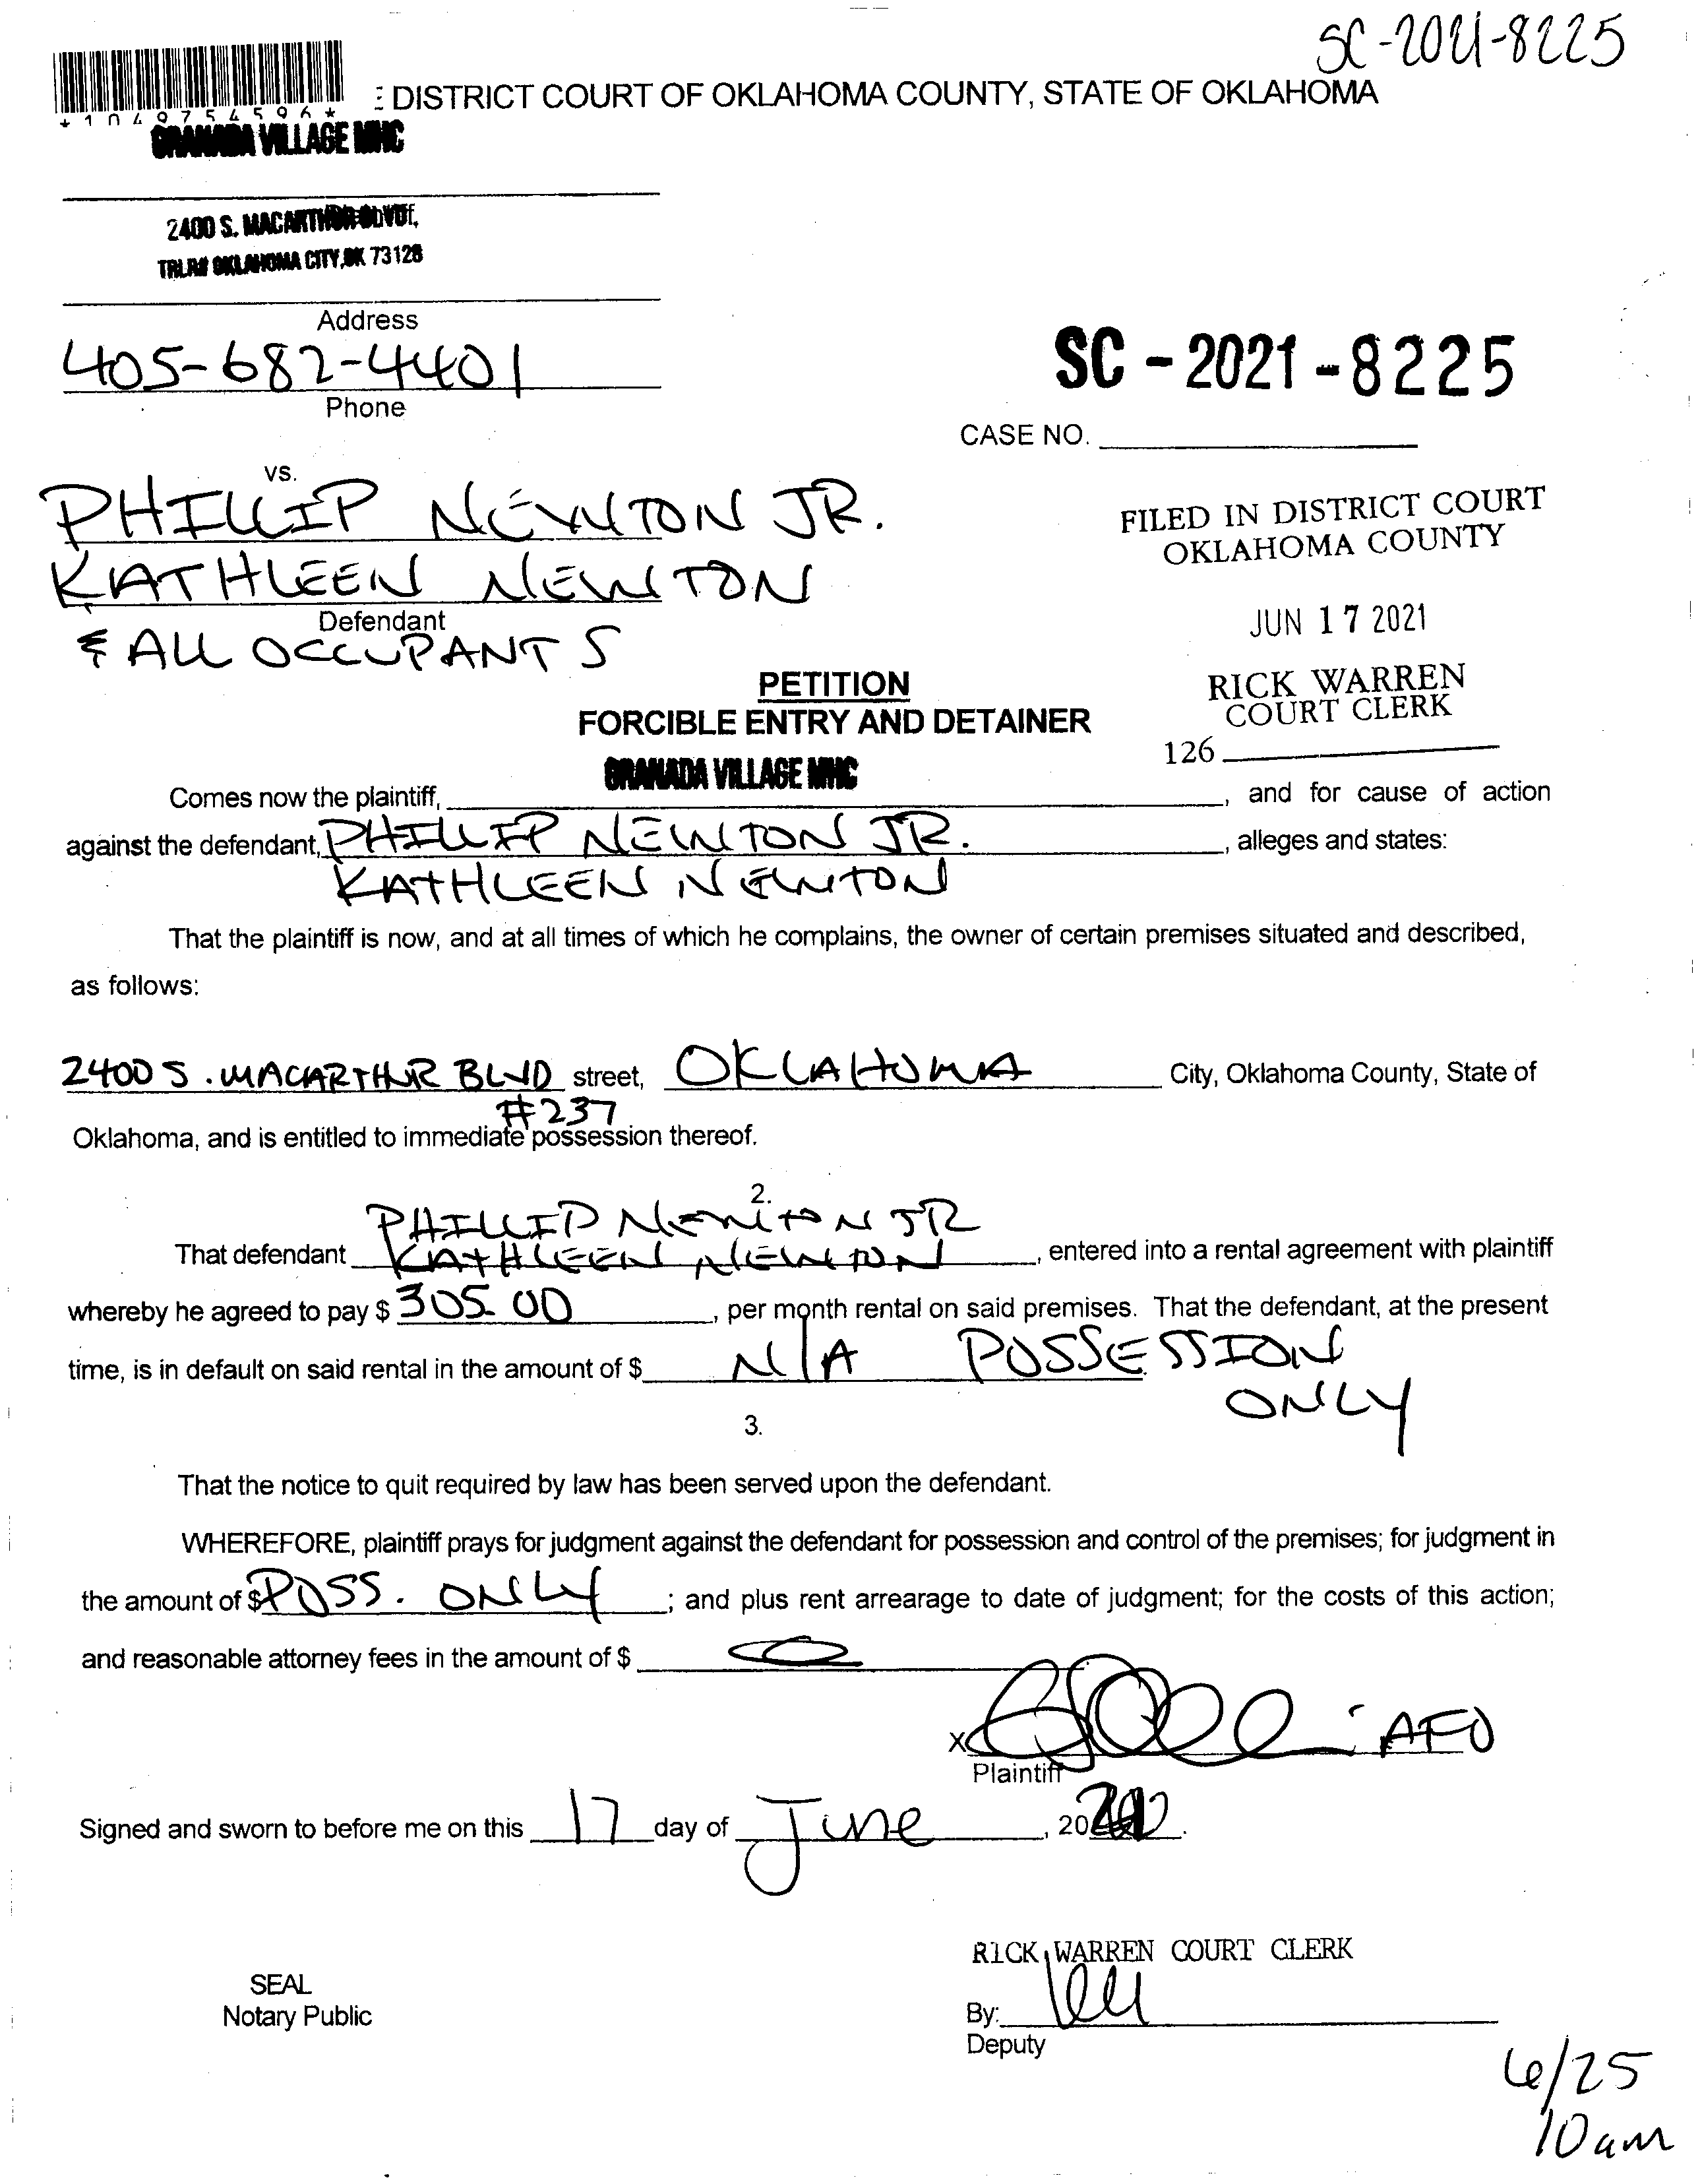 SC-2021-8225
DISTRICT COURT OF OKLAHOMA COUNTY, STATE OF OKLAHOMA
*1049754596*
GRANADA VILLAGE MHC
2400 S. MACARTHUR BLVD
TRLR# OKLAHOMA CITY, OK 73128
Address
405-682-4401
Phone
SC - 2021 - 8225
CASE NO.
vs.
PHILLIP NEWTON JR.
KATHLEEN NEWTON
Defendant
& ALL OCCUPANTS
FILED IN DISTRICT COURT
OKLAHOMA COUNTY
JUN 17 2021
RICK WARREN
COURT CLERK
126
PETITION
FORCIBLE ENTRY AND DETAINER
GRANADA VILLAGE MHC
Comes now the plaintiff, , and for cause of action
against the defendant, PHILLIP NEWTON JR. , alleges and states:
KATHLEEN NEWTON
That the plaintiff is now, and at all times of which he complains, the owner of certain premises situated and described,
as follows:
2400 S. MACARTHUR BLVD street, OKLAHOMA City, Oklahoma County, State of
#237
Oklahoma, and is entitled to immediate possession thereof.
2.
PHILLIP NEWTON JR
That defendant KATHLEEN NEWTON , entered into a rental agreement with plaintiff
whereby he agreed to pay $ 305.00 , per month rental on said premises. That the defendant, at the present
time, is in default on said rental in the amount of $ N/A POSSESSION
ONLY
3.
That the notice to quit required by law has been served upon the defendant.
WHEREFORE, plaintiff prays for judgment against the defendant for possession and control of the premises; for judgment in
the amount of $ POSS. ONLY ; and plus rent arrearage to date of judgment; for the costs of this action;
and reasonable attorney fees in the amount of $
X AFO
Plaintiff
Signed and sworn to before me on this 17 day of June , 20
RICK WARREN COURT CLERK
SEAL
Notary Public
By:
Deputy
6/25
10am